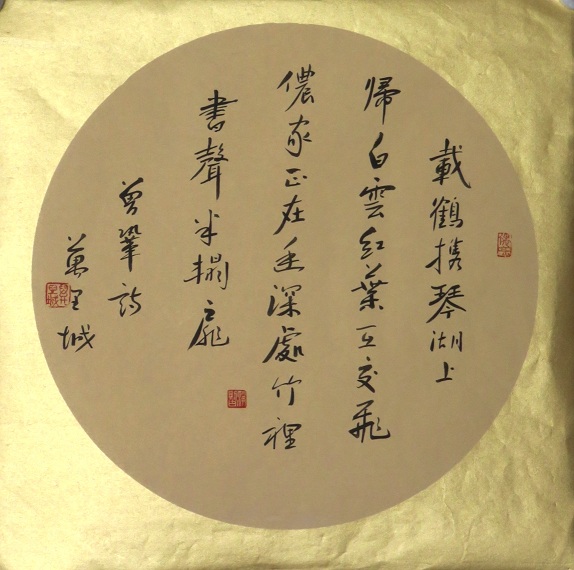 載鶴携琴湖上
歸白雲紅葉互交飛
儂家正在無深處竹裡
書聲半榻扉
曾鞏詩
萬里城